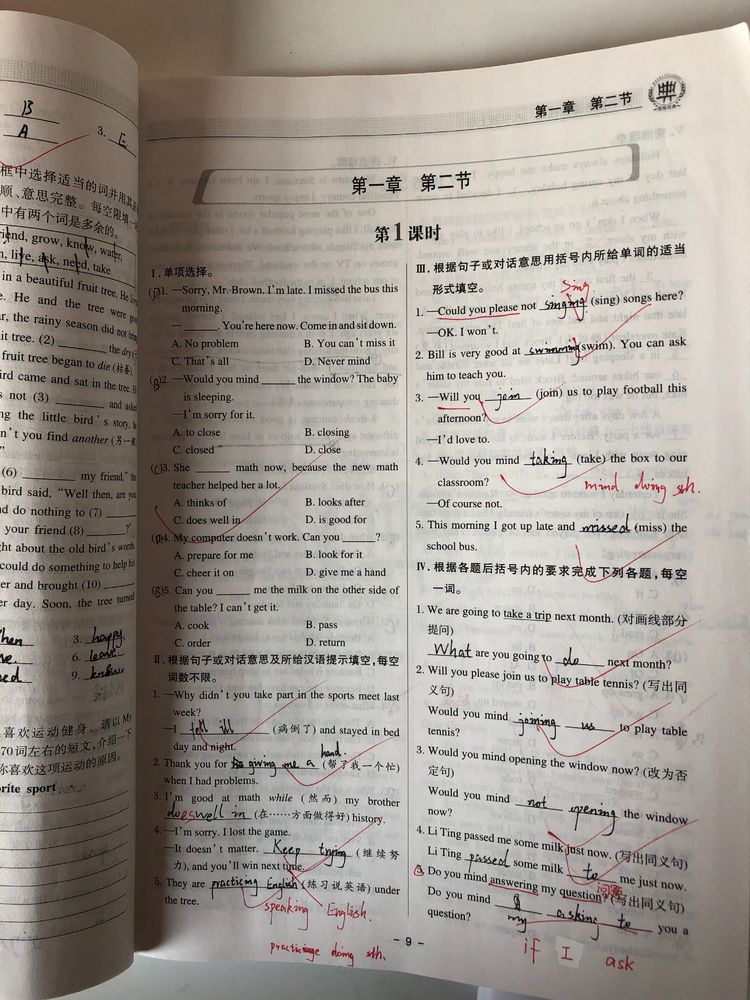 B
A
3. E
框中选择适当的词并用其正
顺、意思完整。每空限填一
中有两个词是多余的。
friend, grow, know, water,
live, ask, need, take
in a beautiful fruit tree. He
e. He and the tree were good
ar, the rainy season did not bring
it tree. (2) ______ the dry (枯萎
fruit tree began to die (枯萎).
ird came and sat in the tree. He
s not (3) ______ and asked
ng the little bird's story, he
n't you find another (另一棵
(6) ______ my friend," the
bird said, "Well then, are you
nd do nothing to (7) ______
your friend (8) ______?"
ght about the old bird's words.
could do something to help his
er and brought (10) ______
er day. Soon, the tree turned
3. happy
6. leave
9. known
喜欢运动健身。请以 My
70词左右的短文,介绍一下
你喜欢这项运动的原因。
orite sport
第一章 第二节
第一章 第二节
第1课时
Ⅰ. 单项选择。
(D)1. —Sorry, Mr. Brown. I'm late. I missed the bus this
morning.
— ______. You're here now. Come in and sit down.
A. No problem B. You can't miss it
C. That's all D. Never mind
(B)2. —Would you mind ______ the window? The baby
is sleeping.
—I'm sorry for it.
A. to close B. closing
C. closed D. close
(C)3. She ______ math now, because the new math
teacher helped her a lot.
A. thinks of B. looks after
C. does well in D. is good for
(D)4. My computer doesn't work. Can you ______?
A. prepare for me B. look for it
C. cheer it on D. give me a hand
(B)5. Can you ______ me the milk on the other side of
the table? I can't get it.
A. cook B. pass
C. order D. return
Ⅱ. 根据句子或对话意思及所给汉语提示填空,每空
词数不限。
1. —Why didn't you take part in the sports meet last
week?
—I fell ill (病倒了) and stayed in bed
day and night.
hand.
2. Thank you for giving me a (帮了我一个忙)
when I had problems.
3. I'm good at math while (然而) my brother
does well in (在……方面做得好) history.
4. —I'm sorry. I lost the game.
—It doesn't matter. Keep trying (继续努
力), and you'll win next time.
5. They are practicing English (练习说英语) under
the tree.
speaking English.
practice doing sth.
Ⅲ. 根据句子或对话意思用括号内所给单词的适当
形式填空。
sing
1. —Could you please not singing (sing) songs here?
—OK. I won't.
2. Bill is very good at swimming (swim). You can ask
him to teach you.
3. —Will you join (join) us to play football this
afternoon?
—I'd love to.
4. —Would you mind taking (take) the box to our
classroom?
mind doing sth.
—Of course not.
5. This morning I got up late and missed (miss) the
school bus.
Ⅳ. 根据各题后括号内的要求完成下列各题,每空
一词。
1. We are going to take a trip next month. (对画线部分
提问)
What are you going to do next month?
2. Will you please join us to play table tennis? (写出同
义句)
Would you mind joining us to play table
tennis?
3. Would you mind opening the window now? (改为否
定句)
Would you mind not opening the window
now?
4. Li Ting passed me some milk just now. (写出同义句)
Li Ting passed some milk to me just now.
5. Do you mind answering my question? (写出同义句)
问题
Do you mind my asking to you a
question?
if I ask
- 9 -